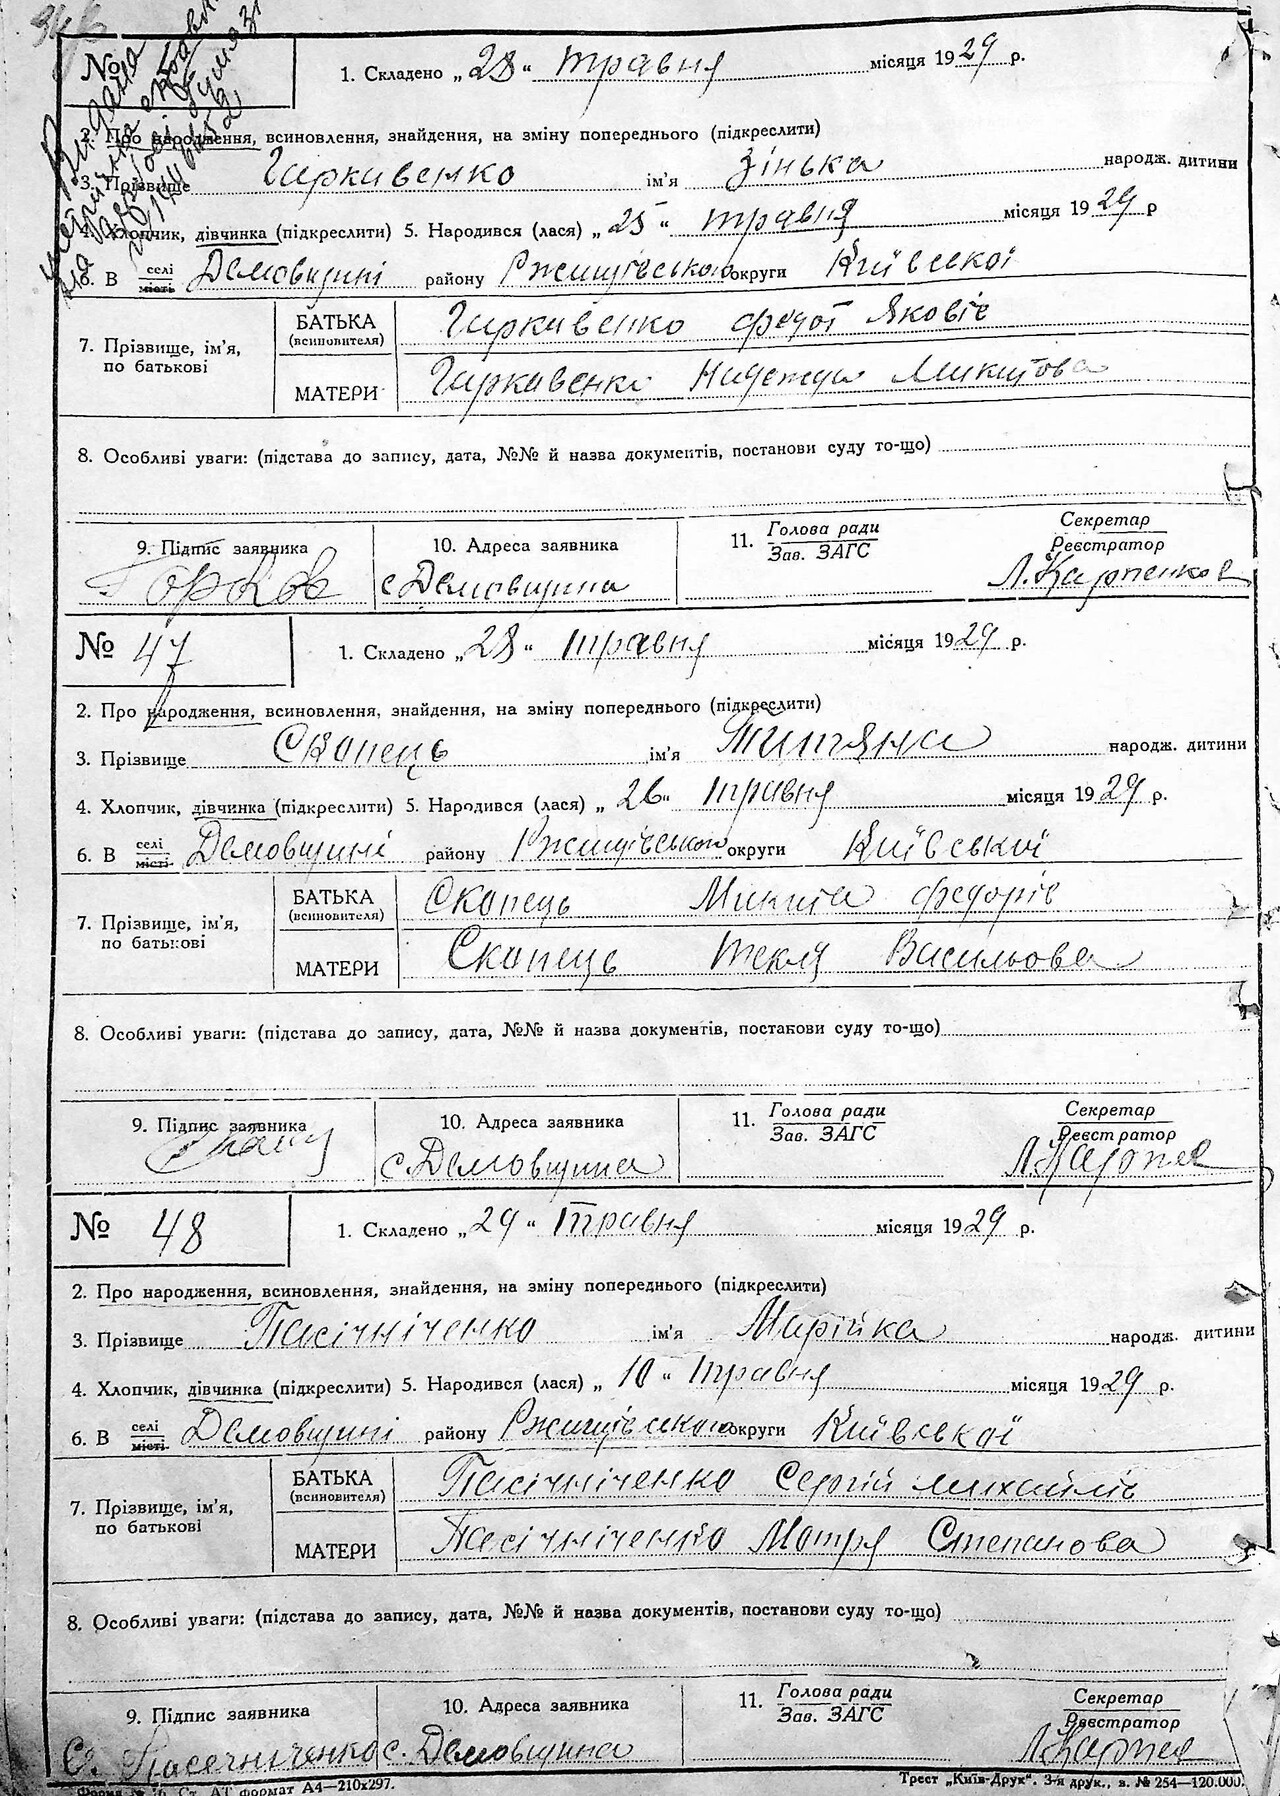 №
1. Складено „28“ травня місяця 1929 р.
2. Про народження, всиновлення, знайдення, на зміну попереднього (підкреслити)
3. Прізвище Гаркавенко ім'я Зінька народж. дитини
4. Хлопчик, дівчинка (підкреслити) 5. Народився (лася) „25“ травня місяця 1929 р
6. В селі місті Демовщині району Ржищівського округи Київської
7. Прізвище, ім'я, по батькові
БАТЬКА (всиновителя) Гаркавенко Федот Яковів
МАТЕРИ Гаркавенко Надежда Микитова
8. Особливі уваги: (підстава до запису, дата, №№ й назва документів, постанови суду то-що)
9. Підпис заявника
10. Адреса заявника с Демовщина
11. Голова ради Зав. ЗАГС
Секретар Реєстратор Л. Карпенков
№ 47
1. Складено „28“ травня місяця 1929 р.
2. Про народження, всиновлення, знайдення, на зміну попереднього (підкреслити)
3. Прізвище Скопець ім'я Титяна народж. дитини
4. Хлопчик, дівчинка (підкреслити) 5. Народився (лася) „26“ травня місяця 1929 р.
6. В селі місті Демовщині району Ржищівського округи Київської
7. Прізвище, ім'я, по батькові
БАТЬКА (всиновителя) Скопець Микита Федорів
МАТЕРИ Скопець Текля Васильова
8. Особливі уваги: (підстава до запису, дата, №№ й назва документів, постанови суду то-що)
9. Підпис заявника
10. Адреса заявника с. Демовщина
11. Голова ради Зав. ЗАГС
Секретар Реєстратор
№ 48
1. Складено „29“ травня місяця 1929 р.
2. Про народження, всиновлення, знайдення, на зміну попереднього (підкреслити)
3. Прізвище Пасічніченко ім'я Марійка народж. дитини
4. Хлопчик, дівчинка (підкреслити) 5. Народився (лася) „10“ травня місяця 1929 р.
6. В селі місті Демовщині району Ржищівського округи Київської
7. Прізвище, ім'я, по батькові
БАТЬКА (всиновителя) Пасічніченко Сергій Михайлів
МАТЕРИ Пасічніченко Мотря Степанова
8. Особливі уваги: (підстава до запису, дата, №№ й назва документів, постанови суду то-що)
9. Підпис заявника Пасечниченко
10. Адреса заявника с. Демовщина
11. Голова ради Зав. ЗАГС
Секретар Реєстратор
Ст. АТ формат А4—210х297.
Трест „Київ-Друк“. 3-я друк., в. № 254—120.000.